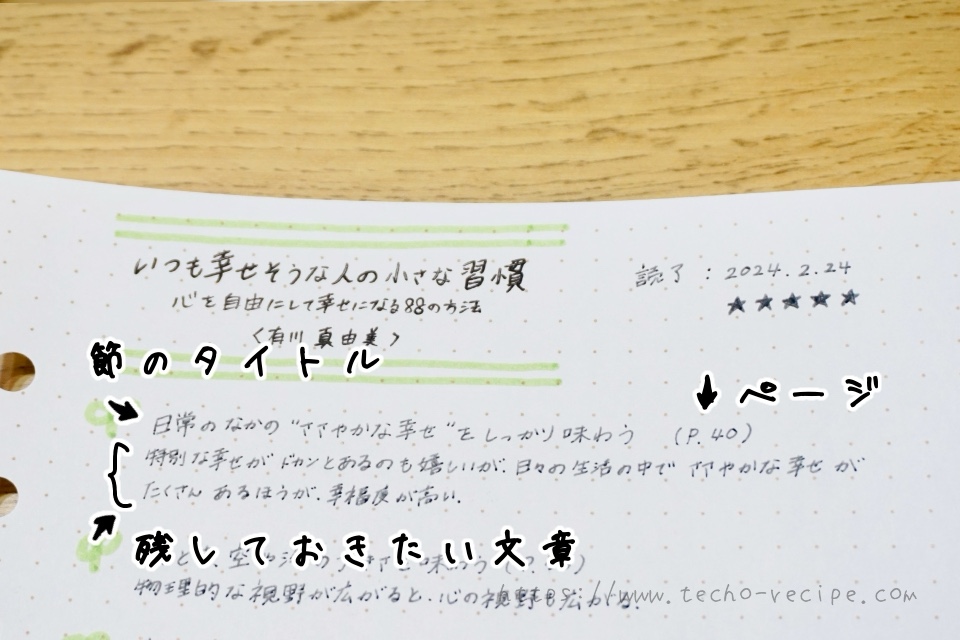 いつも幸せそうな人の小さな習慣
心を自由にして幸せになる88の方法
〈有川真由美〉
読了：2024.2.24
★★★★★
節のタイトル
↓ページ
日常のなかの“ささやかな幸せ”をしっかり味わう (P.40)
特別な幸せがドカンとあるのも嬉しいが、日々の生活の中でささやかな幸せが
たくさんあるほうが、幸福度が高い。
残しておきたい文章
物理的な視野が広がると、心の視野も広がる。
://www.techo-recipe.com